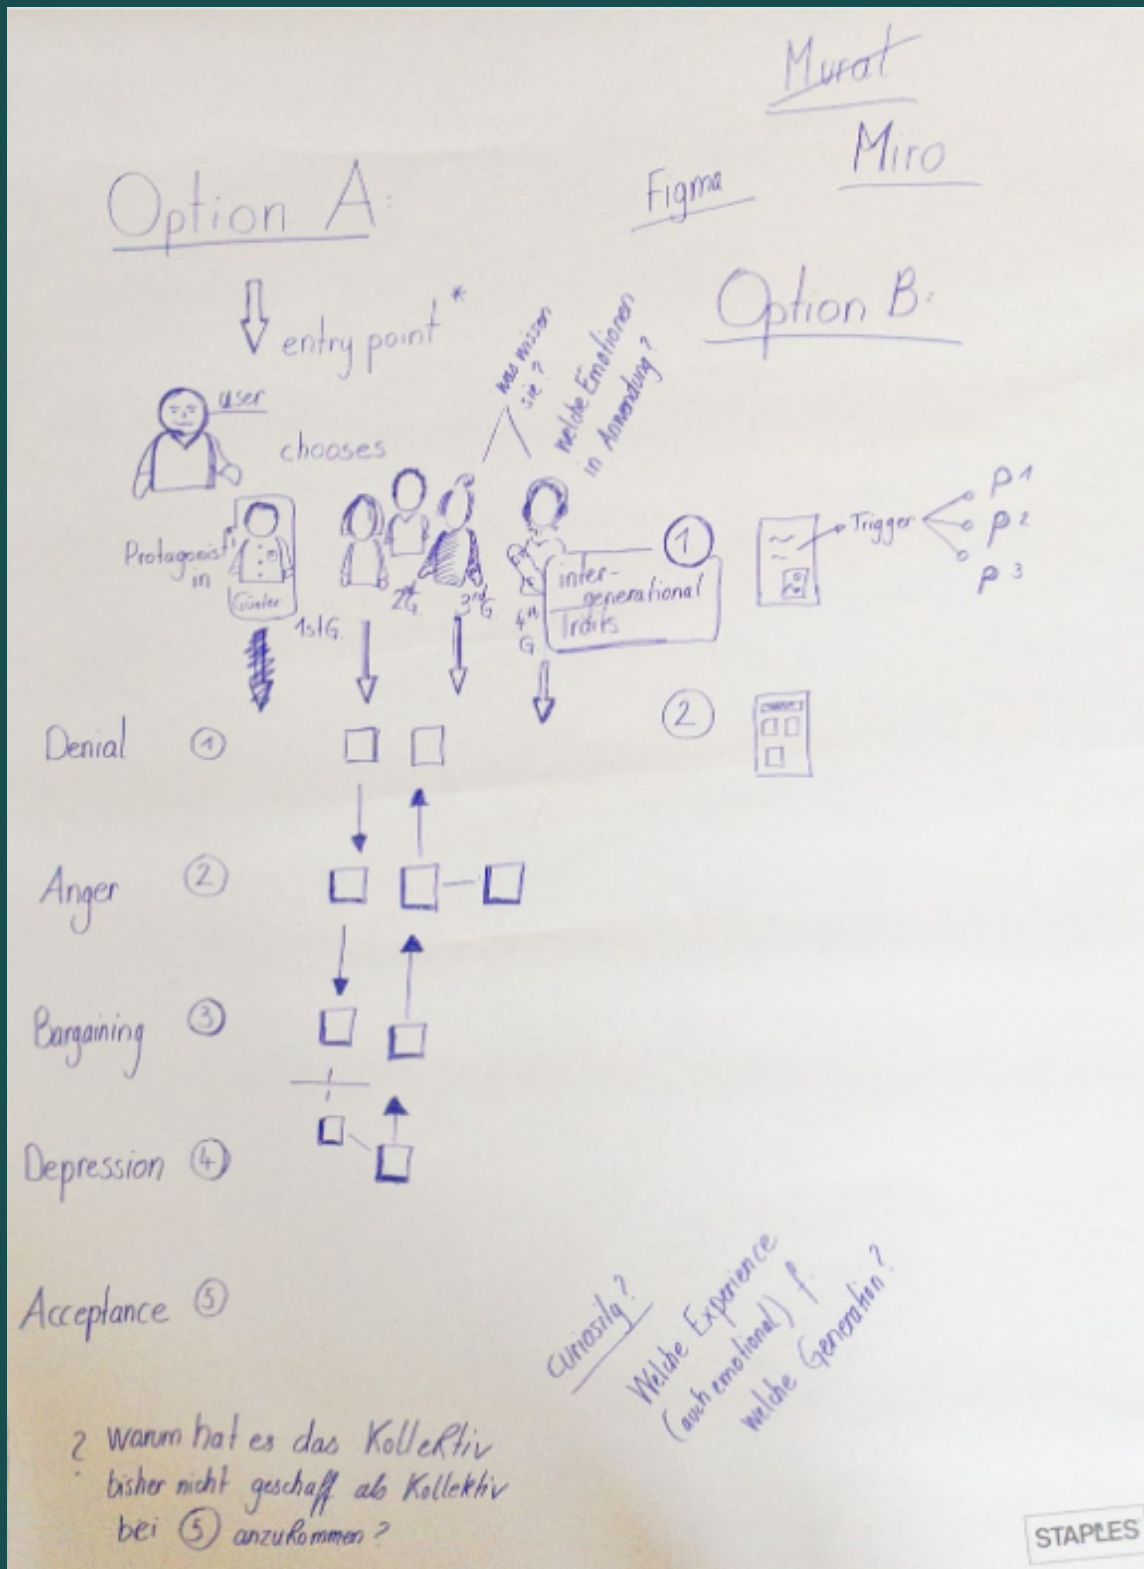 Murat
Miro
Figma
Option A:
Option B:
entry point *
user
chooses
was wissen
sie?
welche Emotionen
in Anwendung?
Protagonist
in
Günter
1st G.
2nd
G.
3rd
G.
4th
G
1
inter-
generational
Traits
Trigger
P1
P2
P3
2
Denial 1
Anger 2
Bargaining 3
Depression 4
Acceptance 5
curiosity?
Welche Experience
(auch emotional) f.
welche Generation?
? warum hat es das Kollektiv
bisher nicht geschaff als Kollektiv
bei 5 anzukommen?
STAPLES